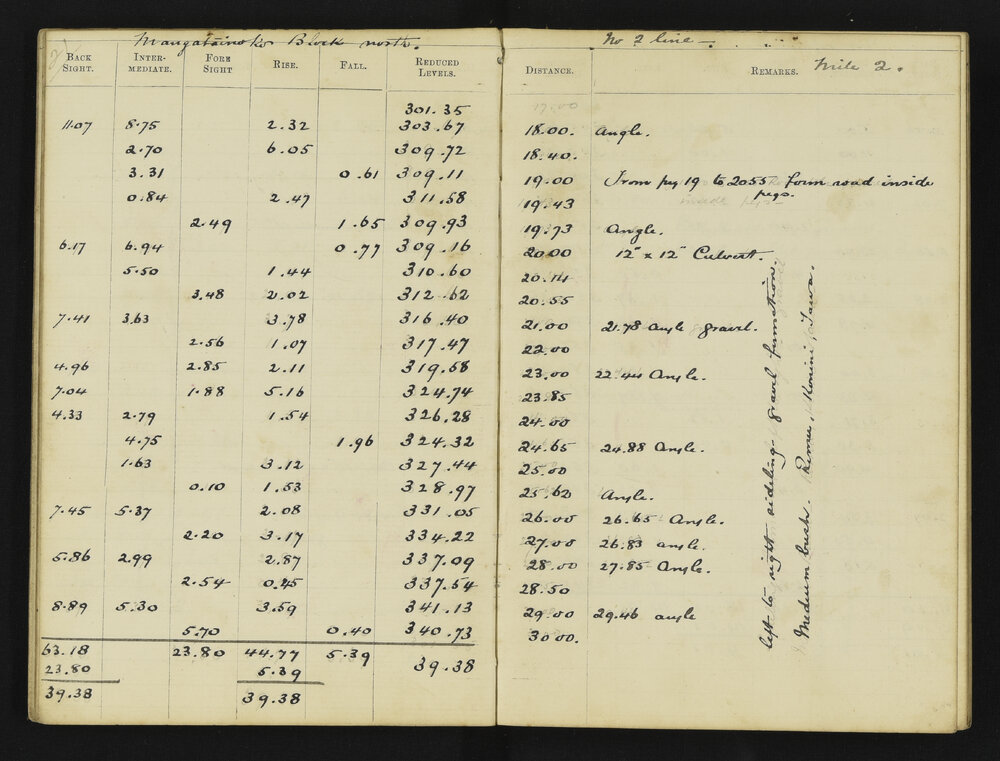 Mangatainoka Block north.
BACK SIGHT. INTER-MEDIATE. FORE SIGHT RISE. FALL. REDUCED LEVELS.
301.35
11.07 8.75 2.32 303.67
2.70 6.05 309.72
3.31 0.61 309.11
0.84 2.47 311.58
2.49 1.65 309.93
6.17 6.94 0.77 309.16
5.50 1.44 310.60
3.48 2.02 312.62
7.41 3.63 3.78 316.40
2.56 1.07 317.47
4.96 2.85 2.11 319.58
7.04 1.88 5.16 324.74
4.33 2.79 1.54 326.28
4.75 1.96 324.32
1.63 3.12 327.44
0.10 1.53 328.97
7.45 5.37 2.08 331.05
2.20 3.17 334.22
5.86 2.99 2.87 337.09
2.54 0.45 337.54
8.89 5.30 3.59 341.13
5.70 0.40 340.73
63.18 23.80 44.77 5.39 39.38
23.80 5.39
39.38 39.38
No 2 line
DISTANCE. REMARKS. Mile 2.
17.00
18.00. Angle.
18.40.
19.00 From peg 19 to 2055 form road inside
pegs.
19.43
19.73 Angle.
20.00 12" x 12" Culvert.
20.14
20.55
21.00 21.78 angle gravel.
22.00
23.00 22.44 Angle.
23.85
24.00
24.65 24.88 Angle.
25.00
25.62 Angle.
26.00 26.65 Angle.
27.00 26.83 angle.
28.00 27.85 Angle.
28.50
29.00 29.46 angle
30.00.
left to right sideling gravel formation.
Medium bush. Remu, Konini, Tawa.